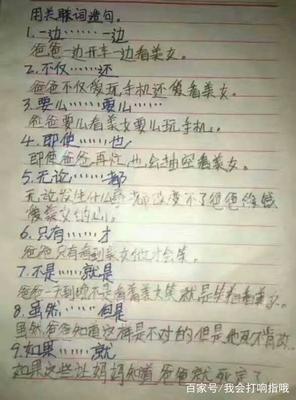 用关联词造句。
1.一边……一边
爸爸一边开车一边看美女。
2.不仅……还
爸爸不仅爱玩手机还爱看美女。
3.要么……要么……
爸爸要么看美女要么玩手机。
4.即使……也
即使爸爸再忙,也会抽空看美女。
5.无论……都
无论发生什么都改变不了爸爸
爱美女的心。
6.只有……才
爸爸只有看到美女他才会笑。
7.不是……就是
爸爸一天到晚不是看着美女笑就是看美女。
8.虽然……但是
虽然爸爸知道这样是不对的但是他
9.如果……就
如果这些让妈妈知道爸爸就死定了
百家号/我会打响指哦